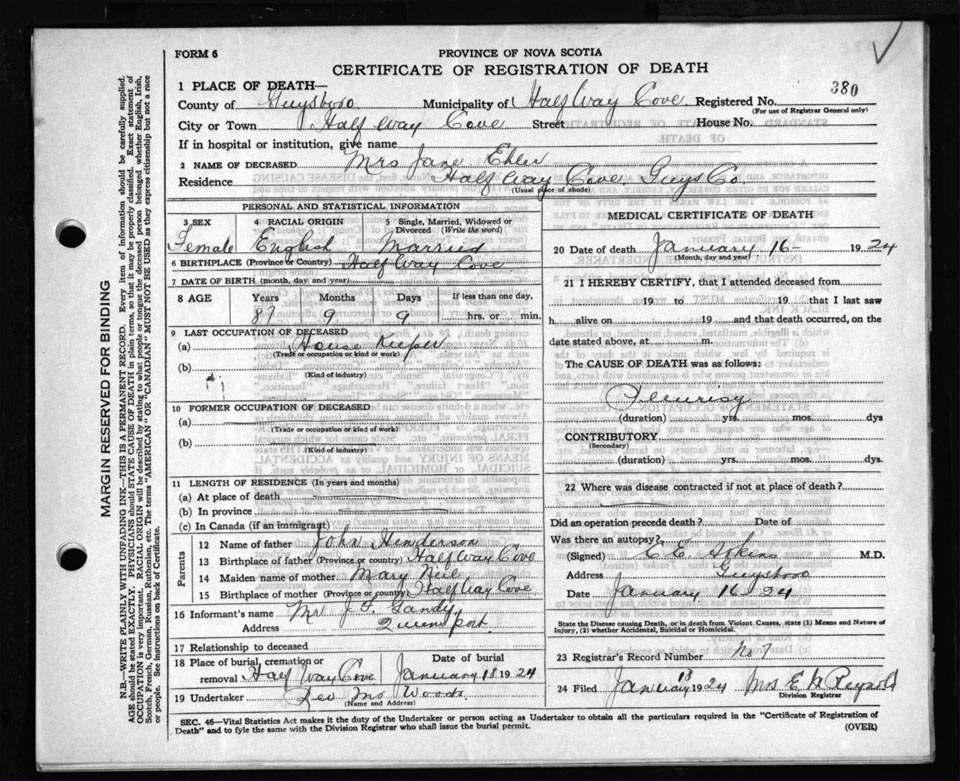 FORM 6
PROVINCE OF NOVA SCOTIA
CERTIFICATE OF REGISTRATION OF DEATH
380
1 PLACE OF DEATH—
County of Guysboro Municipality of Half Way Cove Registered No.
(For use of Registrar General only)
City or Town Half Way Cove Street House No.
If in hospital or institution, give name
2 NAME OF DECEASED Mrs Jane Ehler
Residence Half Way Cove Guys Co
(Usual place of abode)
PERSONAL AND STATISTICAL INFORMATION
3 SEX 4 RACIAL ORIGIN 5 Single, Married, Widowed or Divorced (Write the word)
Female English Married
6 BIRTHPLACE (Province or Country) Half Way Cove
7 DATE OF BIRTH (month, day, and year)
8 AGE Years Months Days If less than one day,
87 9 9 hrs. or min.
9 LAST OCCUPATION OF DECEASED
(a) House Keeper
(Trade or occupation or kind or work)
(b)
(Kind of industry)
10 FORMER OCCUPATION OF DECEASED
(a)
(Trade or occupation or kind of work)
(b)
(Kind of industry)
11 LENGTH OF RESIDENCE (In years and months)
(a) At place of death
(b) In province
(c) In Canada (if an immigrant)
Parents
12 Name of father John Henderson
13 Birthplace of father (Province or country) Half Way Cove
14 Maiden name of mother Mary Neil
15 Birthplace of mother (Province or country) Half Way Cove
16 Informant's name Mr J. F. Gandy
Address Queensport
17 Relationship to deceased
18 Place of burial, cremation or removal Half Way Cove Date of burial January 18 1924
19 Undertaker Woods
(Name and Address)
MEDICAL CERTIFICATE OF DEATH
20 Date of death January 16 - 1924
(Month, day and year)
21 I HEREBY CERTIFY, that I attended deceased from
19 to 19 that I last saw
h alive on 19 and that death occurred, on the
date stated above, at m.
The CAUSE OF DEATH was as follows:
Pleurisy
(duration) yrs. mos. dys
CONTRIBUTORY
(Secondary)
(duration) yrs. mos. dys.
22 Where was disease contracted if not at place of death?
Did an operation precede death? Date of
Was there an autopsy?
(Signed) C. E. Atkins M.D.
Address Guysboro
Date January 16 - 24
State the Disease causing Death, or in death from Violent Causes, state (1) Means and Nature of Injury, (2) whether Accidental, Suicidal or Homicidal.
23 Registrar's Record Number No 7
24 Filed January 18 1924 Mrs E
Division Registrar
SEC. 46—Vital Statistics Act makes it the duty of the Undertaker or person acting as Undertaker to obtain all the particulars required in the "Certificate of Registration of
Death" and to fyle the same with the Division Registrar who shall issue the burial permit. (OVER)
MARGIN RESERVED FOR BINDING
N.B.—WRITE PLAINLY WITH UNFADING INK—THIS IS A PERMANENT RECORD. Every item of information should be carefully supplied.
AGE should be stated EXACTLY. PHYSICIANS should STATE CAUSE OF DEATH in plain terms, so that it may be properly classified. Exact statement of
OCCUPATION is very important. RACIAL ORIGIN will be described by stating to what people or tongue the deceased person belonged whether English, Irish,
Scotch, French, German, Russian, Ruthenian, etc. The terms "AMERICAN" OR "CANADIAN" MUST NOT BE USED as they express citizenship but not a race
or people. See instructions on back of Certificate.